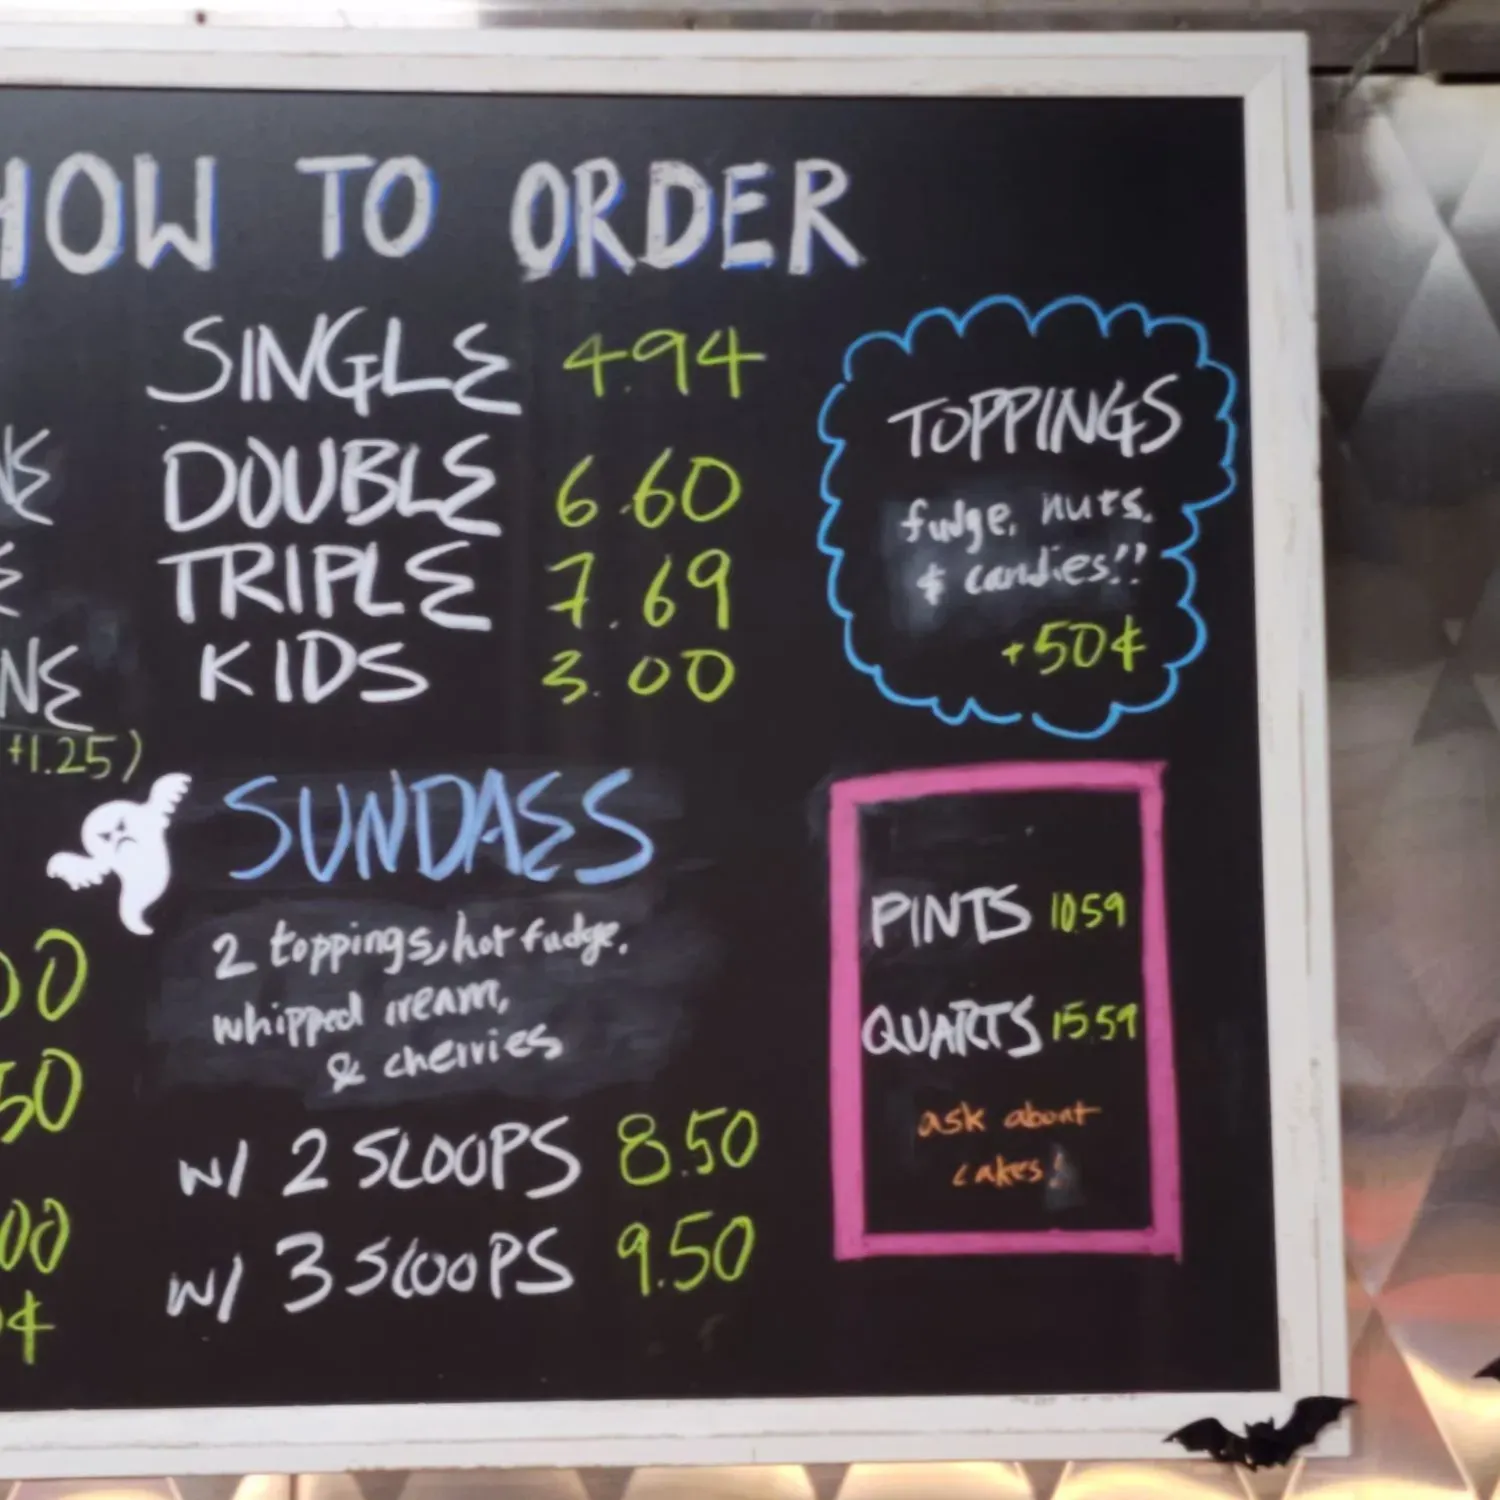 HOW TO ORDER
SINGLE 4.94
DOUBLE 6.60
TRIPLE 7.69
KIDS 3.00
+1.25)
TOPPINGS
fudge, nuts,
& candies!!
+50¢
SUNDAES
2 toppings, hot fudge,
whipped cream,
& cherries
w/ 2 SCOOPS 8.50
w/ 3 SCOOPS 9.50
PINTS 10.59
QUARTS 15.59
ask about
cakes!